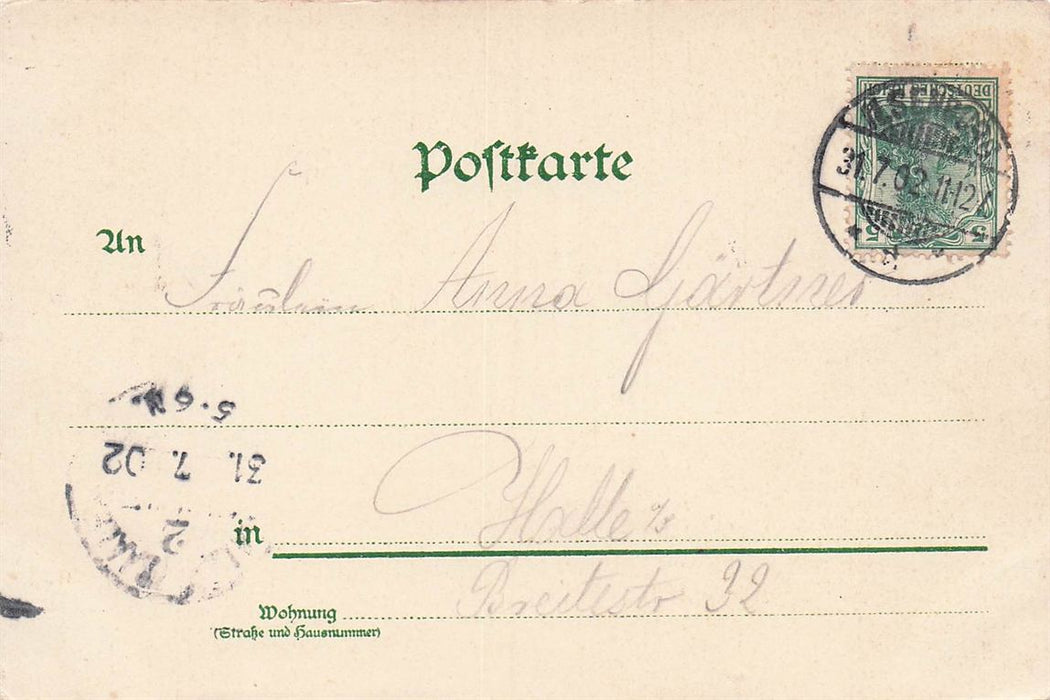 Postkarte
DEUTSCHES REICH
5 5
ILSENBURG
31.7.02.11-12V
An
Fräulein Anna Gärtner
5-6N
31. 7. 02
2
in Halle
Breitestr 32
Wohnung
(Straße und Hausnummer)